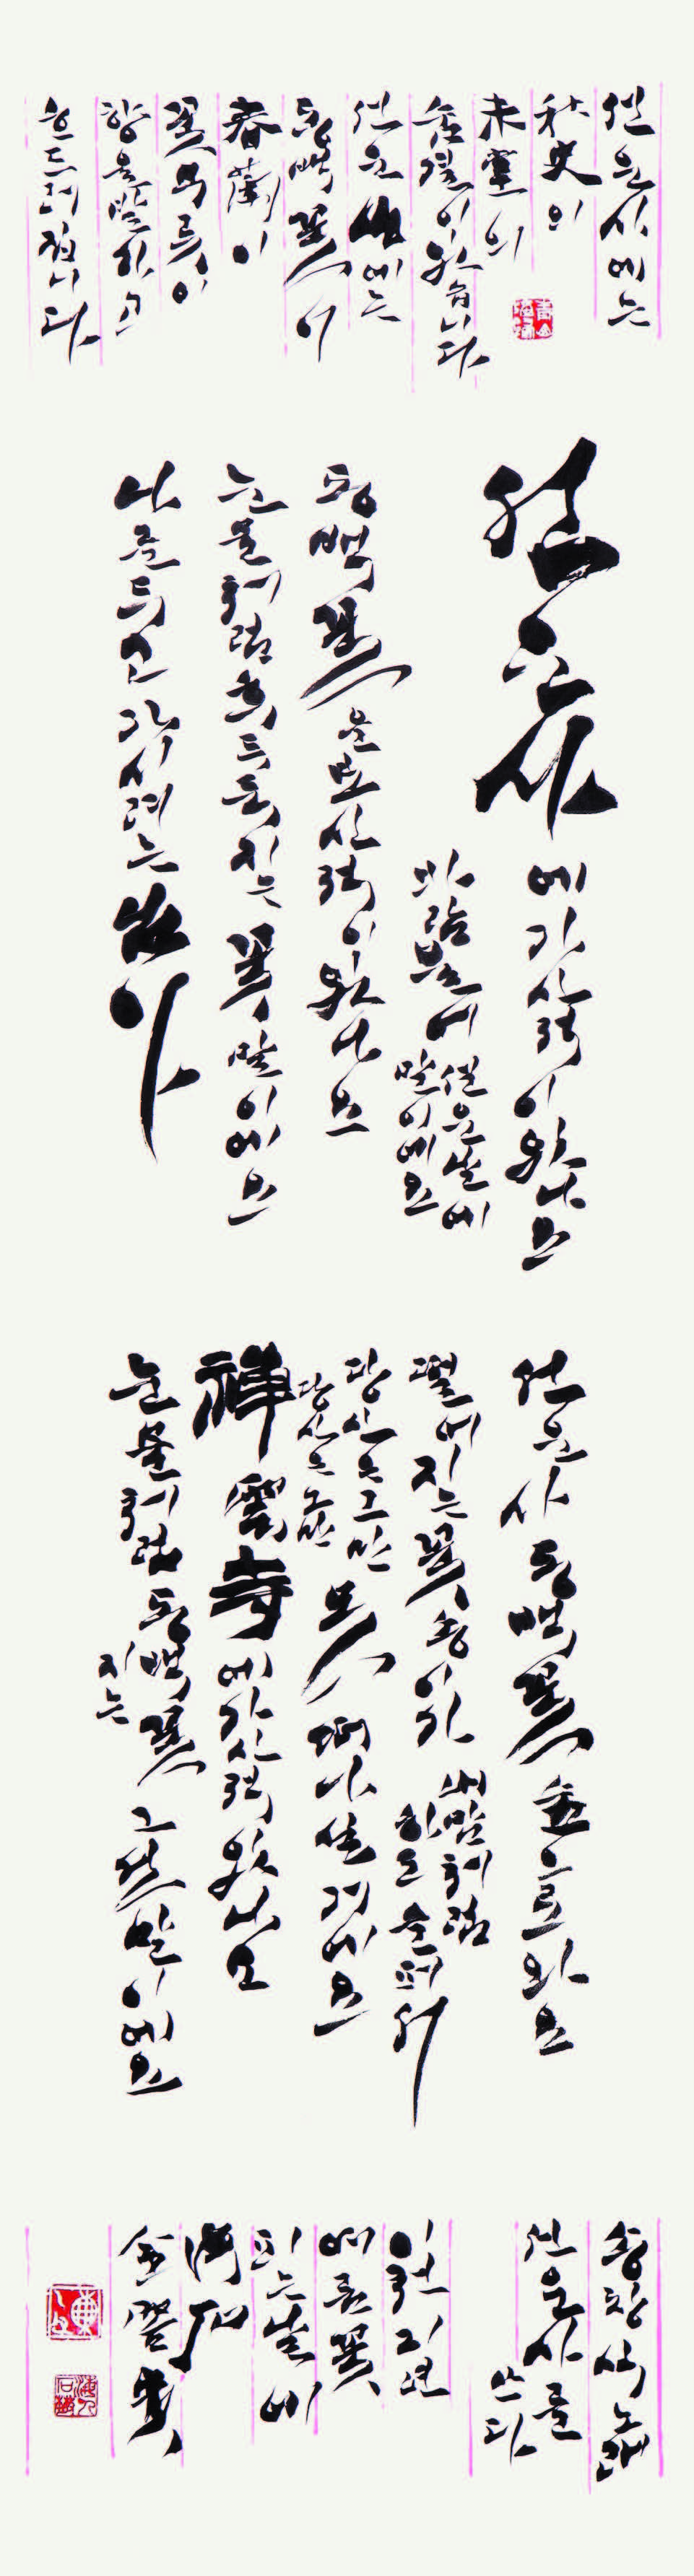 선운사에는
秋史의
未堂의
숨결이 있습니다
선운山에는
동백꽃이
春蘭이
꽃무릇이
향을 발하고
흐드러집니다
선운사에 가신 적이 있나요
바람불어 설운날에
말이에요
동백꽃을 보신 적이 있나요
눈물처럼 후두둑 지는 꽃 말이에요
나를 두고 가시려는 님아
선운사 동백꽃 숲으로 와요
떨어지는 꽃송이가 내맘처럼
하도 슬퍼서
당신은 그만
당신은 그만 못 떠나실 거에요
禪雲寺에 가신적 있나요
눈물처럼 동백꽃
지는 그곳 말이에요
송창식 노래
선운사를
쓰다
예쁜 꽃
피는 날에
海石
金